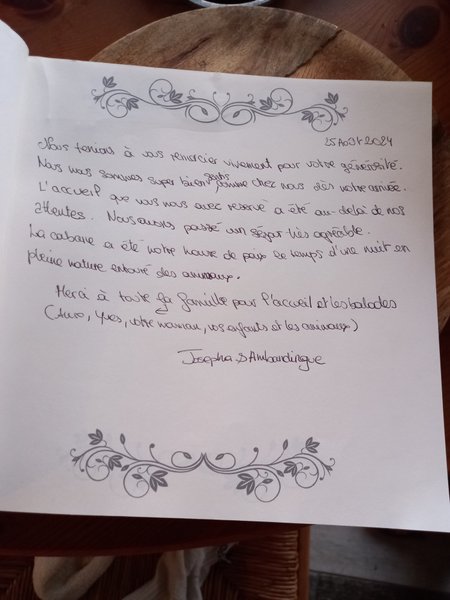 25 Août 2024
Nous tenions à vous remercier vivement pour votre générosité.
Nous nous sommes super bien sentis comme chez nous dès notre arrivée.
L'accueil que vous nous avec reservé a été au-delà de nos
attentes. Nous avons passé un séjour très agréable.
La cabane a été notre havre de paix le temps d'une nuit en
pleine nature entouré des animaux.
Merci à toute la famille pour l'accueil et les balades
(Yves, votre maman, vos enfants et les animaux)
Josepha